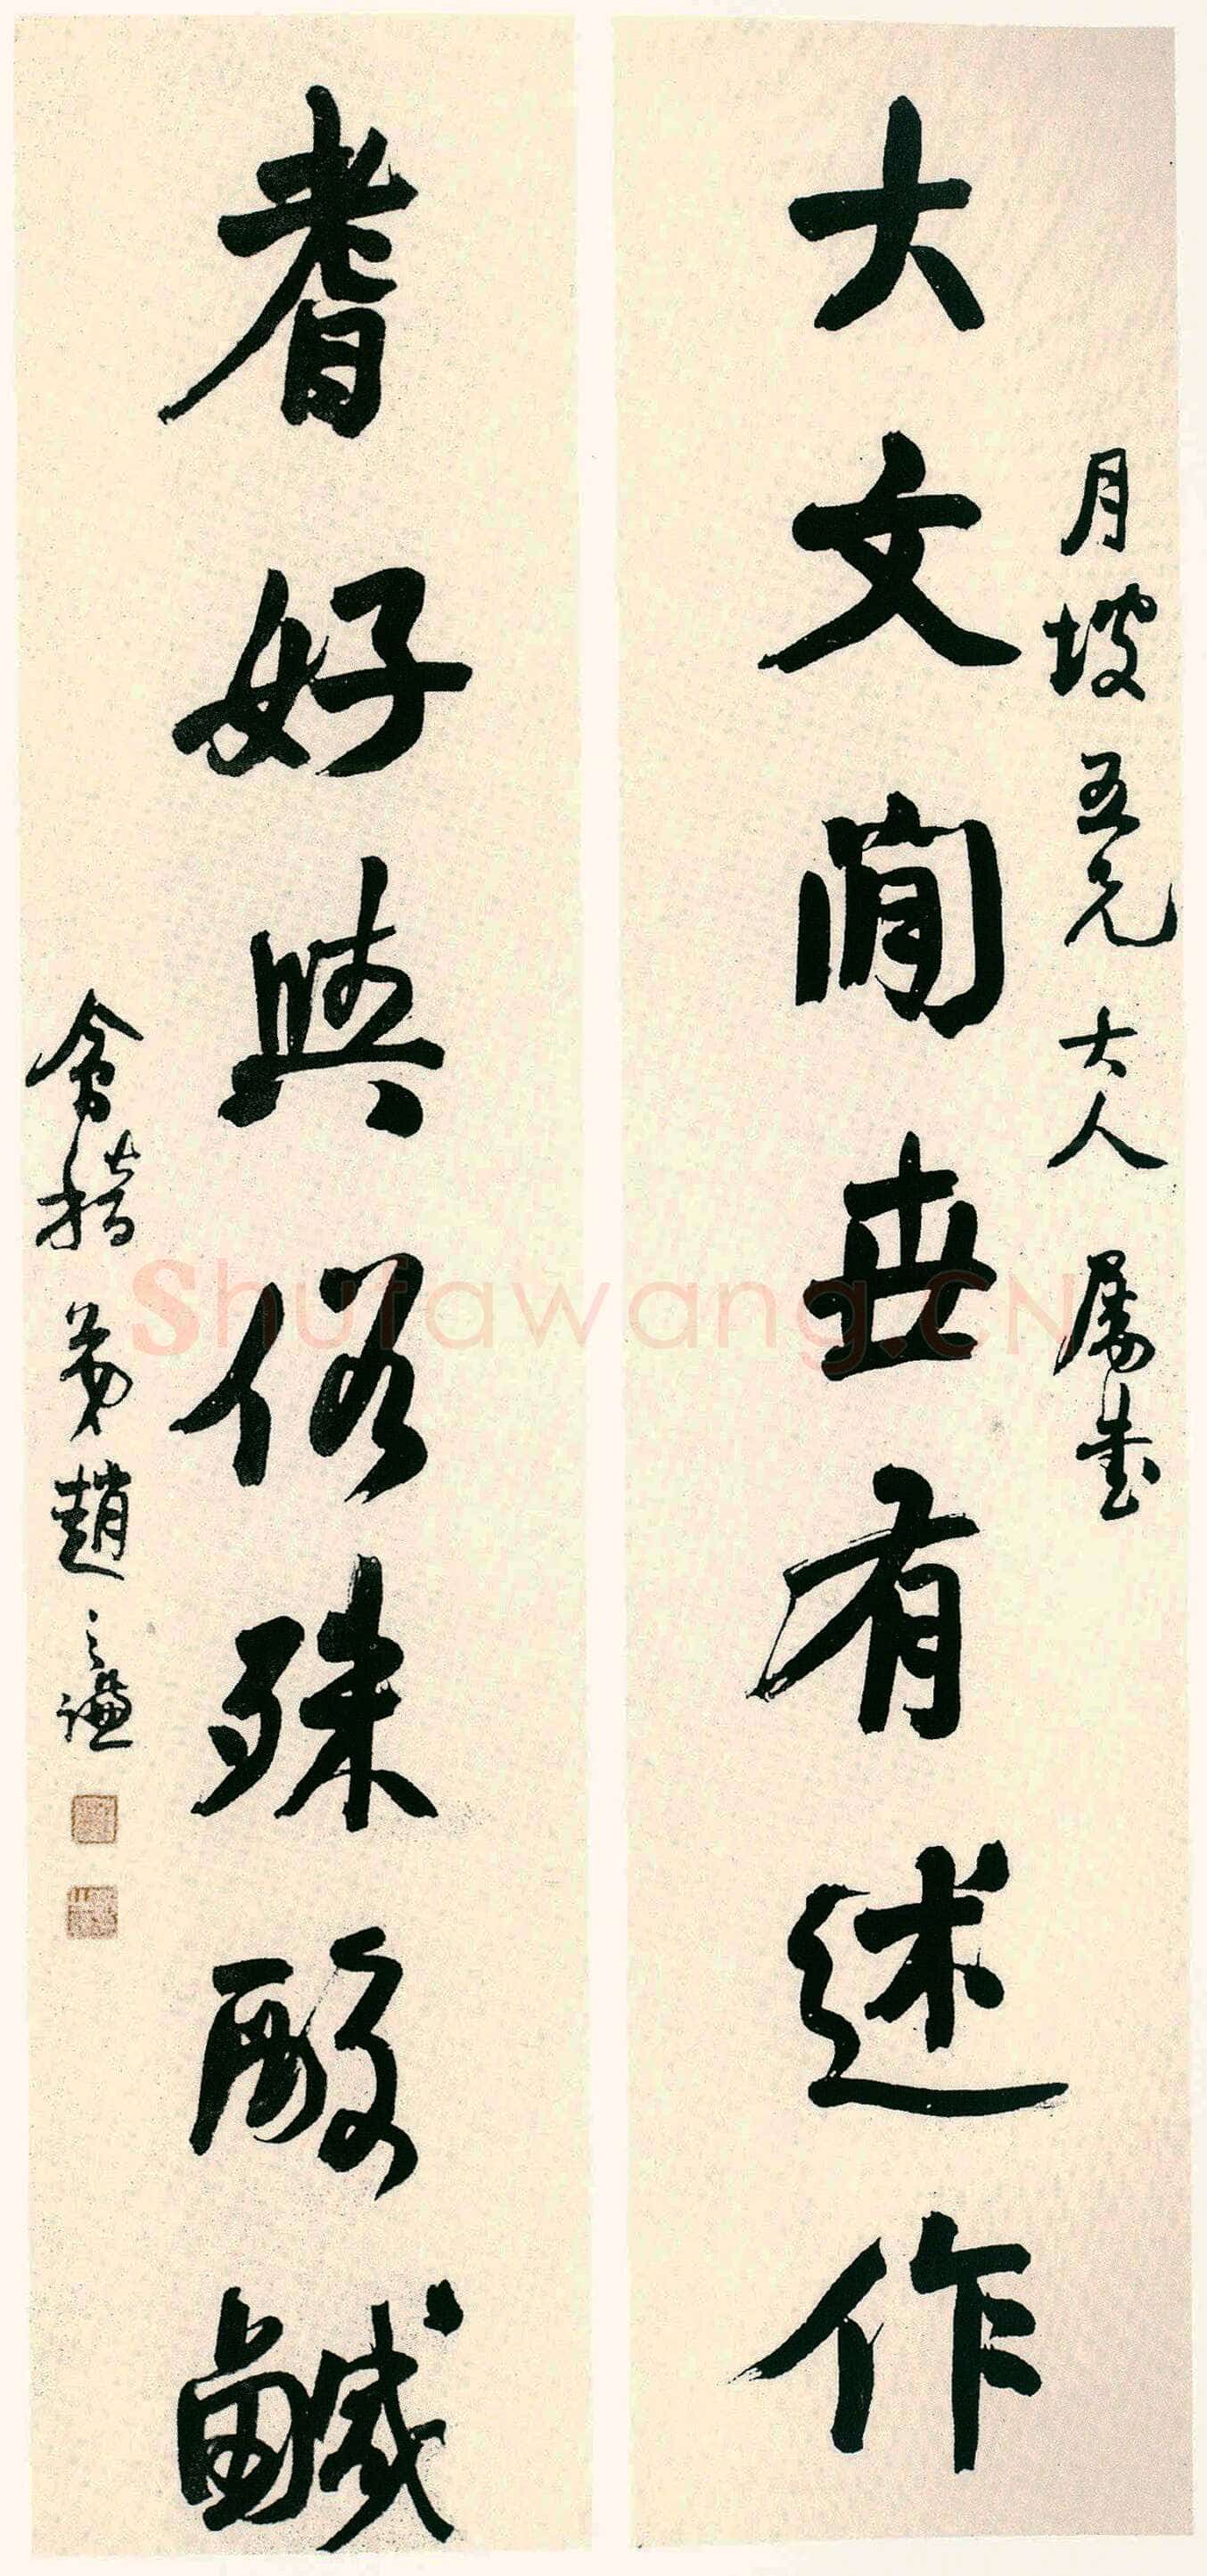 月坡五兄大人屬書
大文閒世有述作
耆好與俗殊酸鹹
會稽弟趙之謙
Shufawang.CN